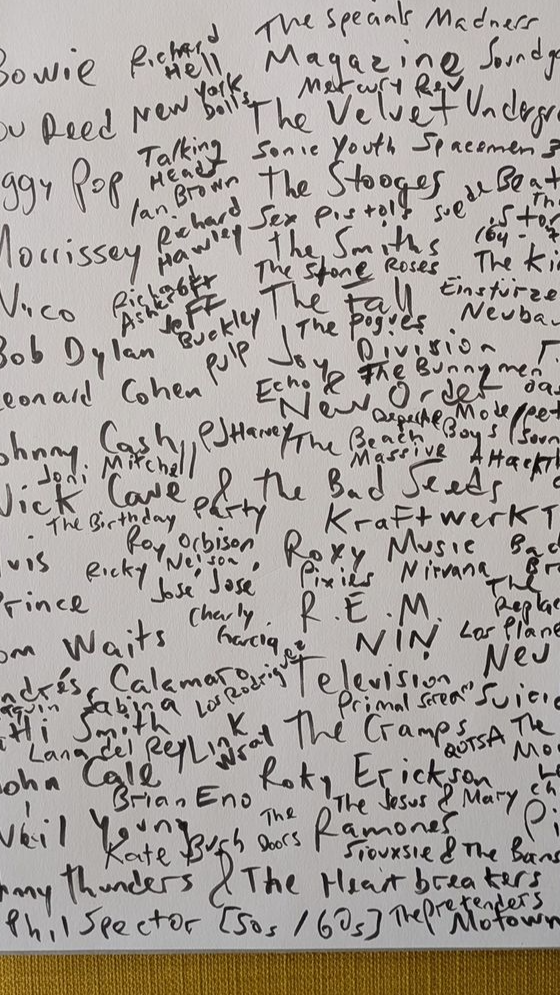 The Specials Madness
Bowie Richard Hell Magazine Soundg
Mercury Rev
ou Reed New York Dolls The Velvet Undergr
Talking Heads Sonic Youth Spacemen 3
ggy Pop Ian Brown The Stooges Suede Beat
Richard Hawley Sex Pistols
Morrissey The Smiths The Ki
Richard Ashkroft The Stone Roses Einstürze
Nico Jeff Buckley The Fall Neubau
The Pogues
Bob Dylan Pulp Joy Division
Leonard Cohen Echo & The Bunnymen oas
New Order
Depeche Mode
ohnny Cash PJ Harvey The Beach Boys
Joni Mitchell Massive Attack
Nick Cave & the Bad Seeds
The Birthday Party Kraftwerk T
Roy Orbison
vis Ricky Nelson Roxy Music Bad
José José Pixies Nirvana Br
Prince The Replac
Charly García R.E.M.
om Waits NIN Los Plane
ndrés Calamaro Los Rodríguez Television Neu
aquin Sabina Primal Scream Suicid
tti Smith The Cramps The
Lana del Rey Link Wray QOTSA Mo
ohn Cale Roky Erickson
Brian Eno The Jesus & Mary Ch
Neil Young The Doors Ramones Pi
Kate Bush Siouxsie & The Bans
nny thunders & The Heartbreakers
The Pretenders
Phil Spector [50s / 60s] Motown